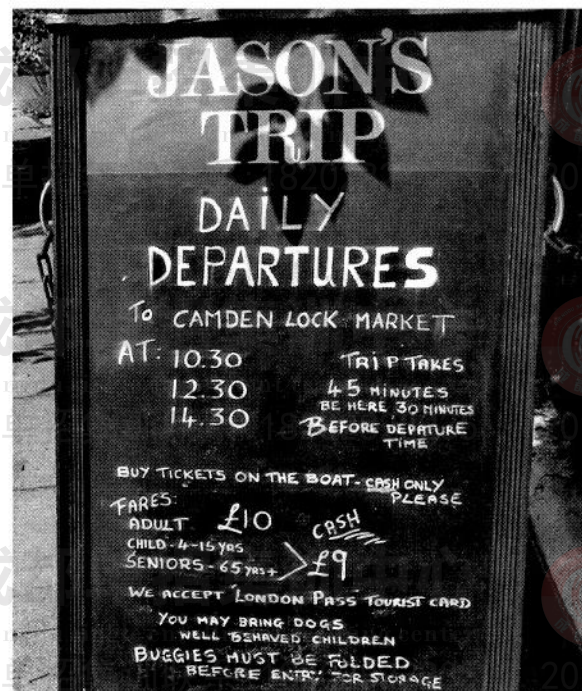 JASON'S
TRIP
DAILY
DEPARTURES
To CAMDEN LOCK MARKET
AT: 10.30
12.30
14.30
TRIP TAKES
45 MINUTES
BE HERE 30 MINUTES
BEFORE DEPATURE
TIME
BUY TICKETS ON THE BOAT - CASH ONLY
PLEASE
FARES:
ADULT £10 CASH
CHILD - 4-15 YRS
SENIORS - 65 YRS+ £9
WE ACCEPT LONDON PASS TOURIST CARD
YOU MAY BRING DOGS
WELL BEHAVED CHILDREN
BUGGIES MUST BE FOLDED
BEFORE ENTRY FOR STORAGE